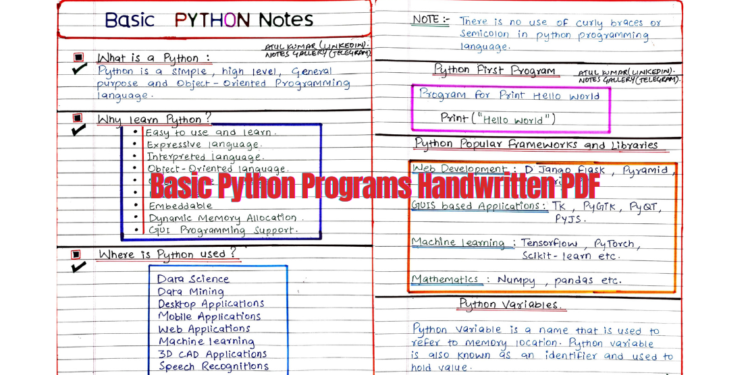 Basic PYTHON Notes
ATUL KUMAR (LINKEDIN).
NOTES GALLERY (TELEGRAM).
What is a Python :
Python is a simple, high level, General
purpose and Object-Oriented Programming
language.
Why learn Python?
Easy to use and learn.
Expressive language.
Interpreted language.
Object-Oriented language.
Embeddable
Dynamic Memory Allocation.
GUIs Programming Support.
Where is Python used?
Data Science
Data Mining
Desktop Applications
Mobile Applications
Web Applications
Machine learning
3D CAD Applications
Speech Recognitions
Basic Python Programs Handwritten PDF
NOTE :- There is no use of curly braces or
semicolon in python programming
language.
Python First Program
ATUL KUMAR (LINKEDIN).
NOTES GALLERY (TELEGRAM).
Program for Print Hello world
Print ("Hello world")
Python Popular Frameworks and Libraries
Web Development : D Jango flask, Pyramid,
GUIs based Applications : TK, PyGTK, PyQT,
PyJS.
Machine learning : Tensorflow, PyTorch,
Scikit-learn etc.
Mathematics : Numpy, pandas etc.
Python Variables.
Python variable is a name that is used to
refer to memory location. Python variable
is also known as an identifier and used to
hold value.